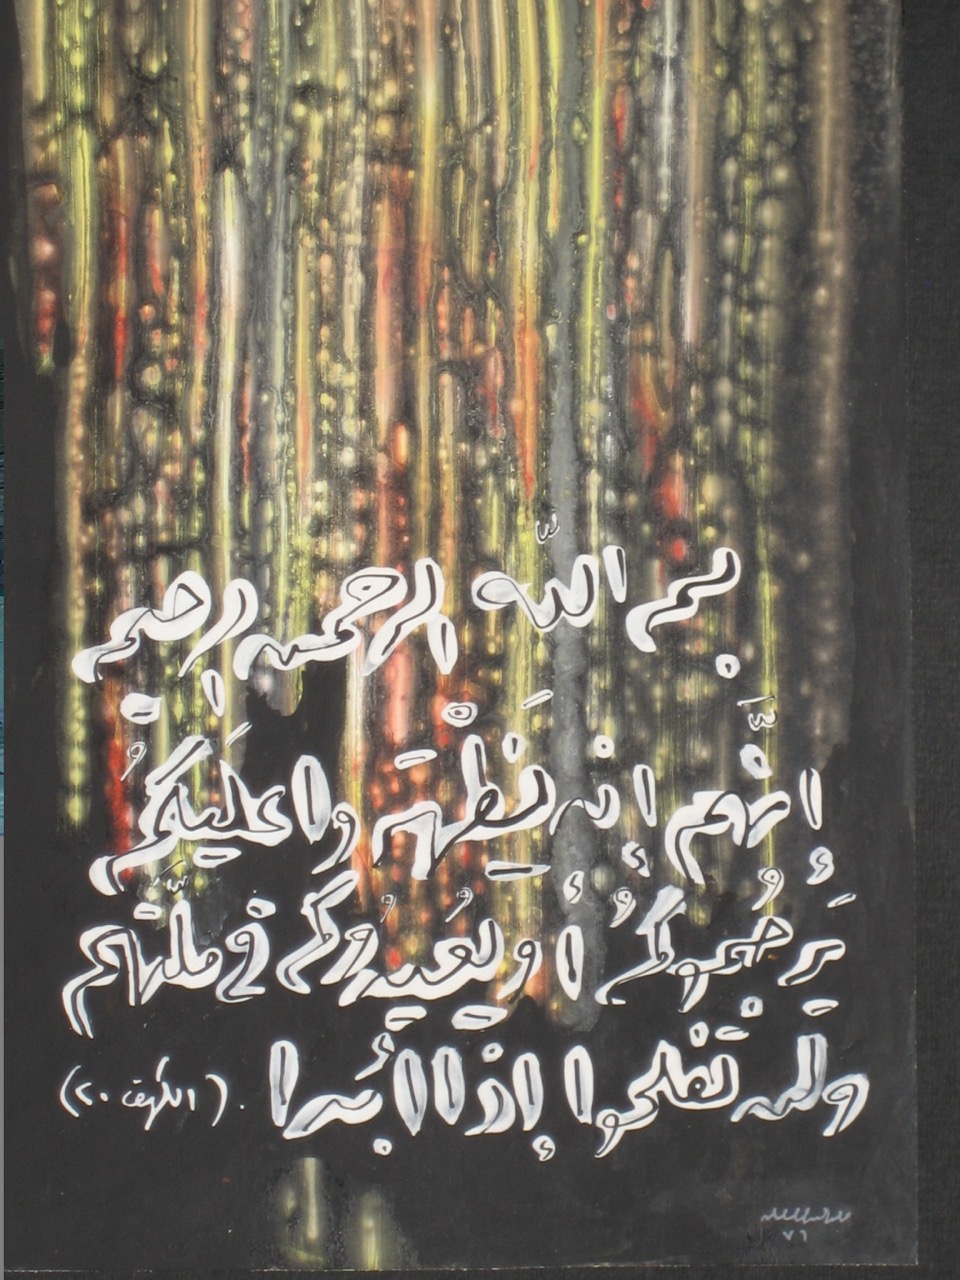 بسم اللّه الرحمن الرحيم
إنَّهُم إِن يَظْهَروا عَلَيْكُمْ
يَرْجُموكُمْ أَو يُعيدُوكُمْ في مِلَّتِهِم
وَلَن تُفْلِحوا إِذًا أَبَدا . (الكهف ٢٠)
٧٦